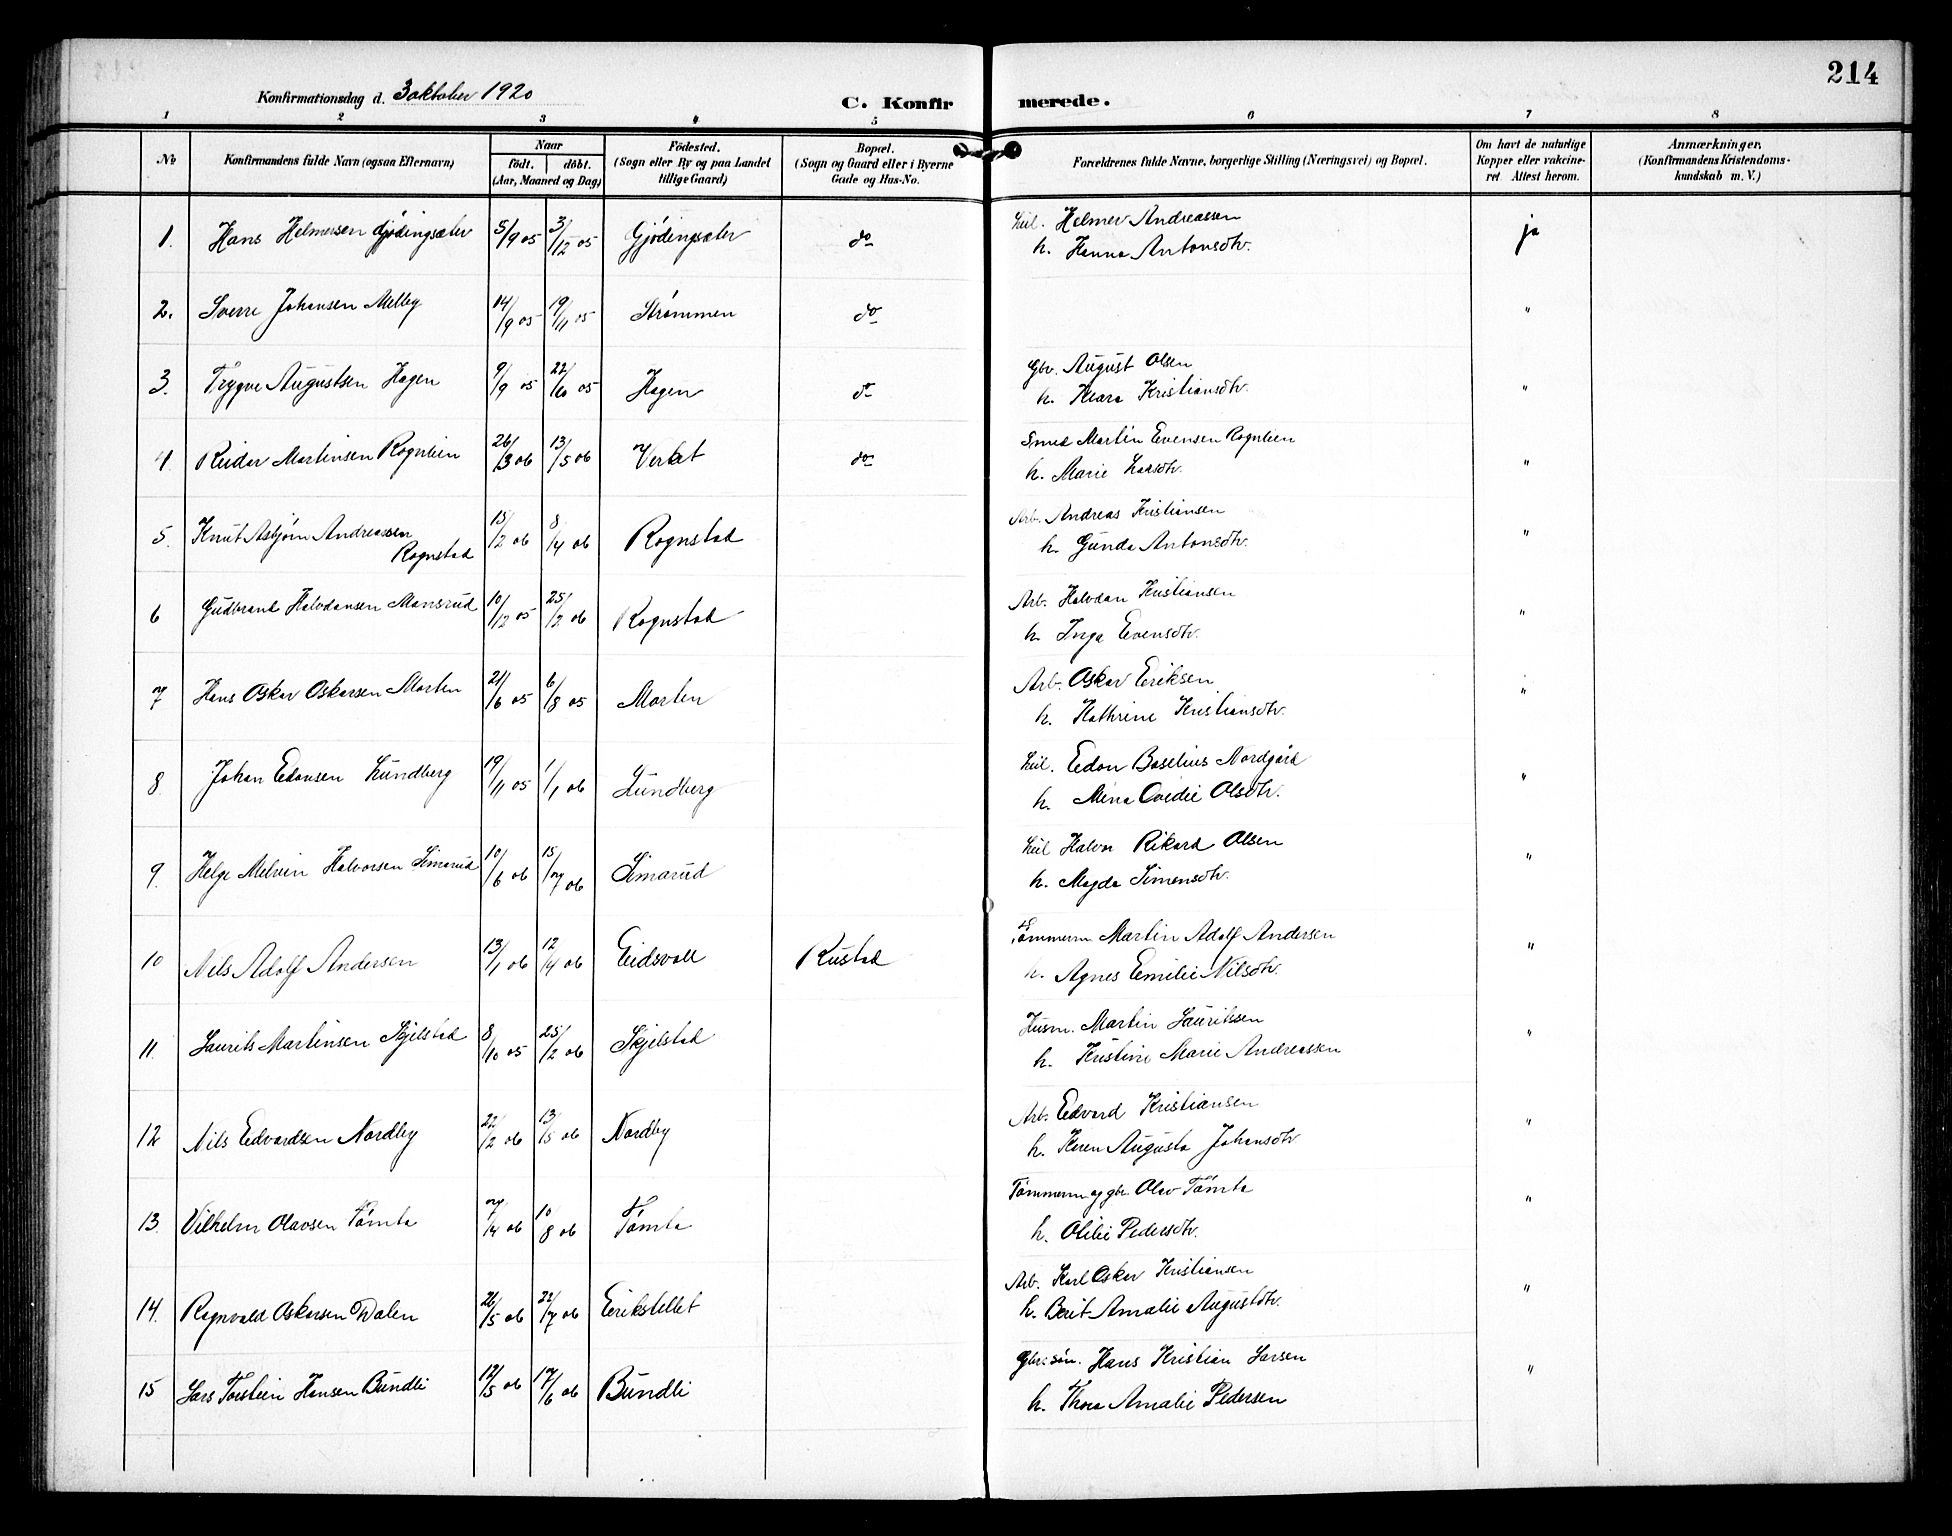 214
Konfirmationsdag d. 3 oktober 1920
C. Konfirmerede.
1 2 3 4 5 6 7 8
No
Konfirmandens fulde Navn (ogsaa Efternavn)
Naar
födt. döbt.
(Aar, Maaned og Dag)
Födested.
(Sogn eller By og paa Landet
tillige Gaard)
Bopæl.
(Sogn og Gaard eller i Byerne
Gade og Hus-No.
Forældrenes fulde Navne, borgerlige Stilling (Næringsvei) og Bopæl.
Om havt de naturlige
Kopper eller vakcine-
ret Attest herom.
Anmærkninger.
(Konfirmandens Kristendoms-
kundskab m. V.)
1. Hans Helmersen Gjödingsæter 5/9 05 3/12 05 Gjödingsæter do Leil. Helmer Andreassen ja
h. Hanna Antonsdtr.
2. Sverre Johansen Melby 14/9 05 19/11 05 Strømmen do "
3. Trygve Augustsen Hagen 9/9 05 22/10 05 Hagen do Gbr. August Olsen "
h. Klara Kristiansdtr.
4. Reidar Martinsen Rognlien 26/3 06 13/5 06 Verket do Smed Martin Evensen Rognlien "
h. Marie Larsdtr.
5. Knut Asbjørn Andreassen
Rognstad 15/2 06 8/4 06 Rognstad Arb. Andreas Kristiansen "
h. Gunda Antonsdtr.
6 Gudbrand Halvdansen Mansrud 10/12 05 25/2 06 Rognstad Arb. Halvdan Kristiansen "
h. Inga Evensdtr.
7 Hans Oskar Oskarsen Morten 21/6 05 6/8 05 Morten Arb. Oskar Eriksen "
h. Kathrine Kristiansdtr.
8. Johan Edonsen Lundberg 19/11 05 1/1 06 Lundberg Leil. Edon Baselius Nordgård "
h. Mina Ovedie Olsdtr.
9. Helge Melvin Halvorsen Simarud 10/6 06 15/7 06 Simarud Leil Halvor Rikard Olsen "
h. Magda Simensdtr.
10 Nils Adolf Andersen 13/1 06 12/4 06 Eidsvoll Rustad Tömmerm Martin Adolf Andersen "
h. Agnes Emilie Nilsdtr.
11. Laurits Martinsen Skjelstad 8/10 05 25/2 06 Skjelstad Husm. Martin Lauritssen "
h. Kristine Marie Andreassen
12 Nils Edvardsen Nordby 22/2 06 13/5 06 Nordby Arb. Edvard Kristiansen "
h. Karen Augusta Johansdtr
13. Vilhelm Olavsen Tömta 7/4 06 10/8 06 Tömta Tömmerm og gbr. Olav Tömta "
h. Olilie Pedersdtr.
14. Ragnvald Oskarsen Dalen 26/5 06 22/7 06 Erikstellet Arb. Karl Oskar Kristiansen "
h. Berit Amalie Augustdtr.
15 Lars Torstein Hansen Bundli 12/5 06 17/6 06 Bundli Gbr. søn. Hans Kristian Larsen "
h. Thora Amalie Pedersen